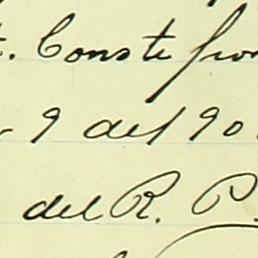 . Conste
9 del 90
del R. P.